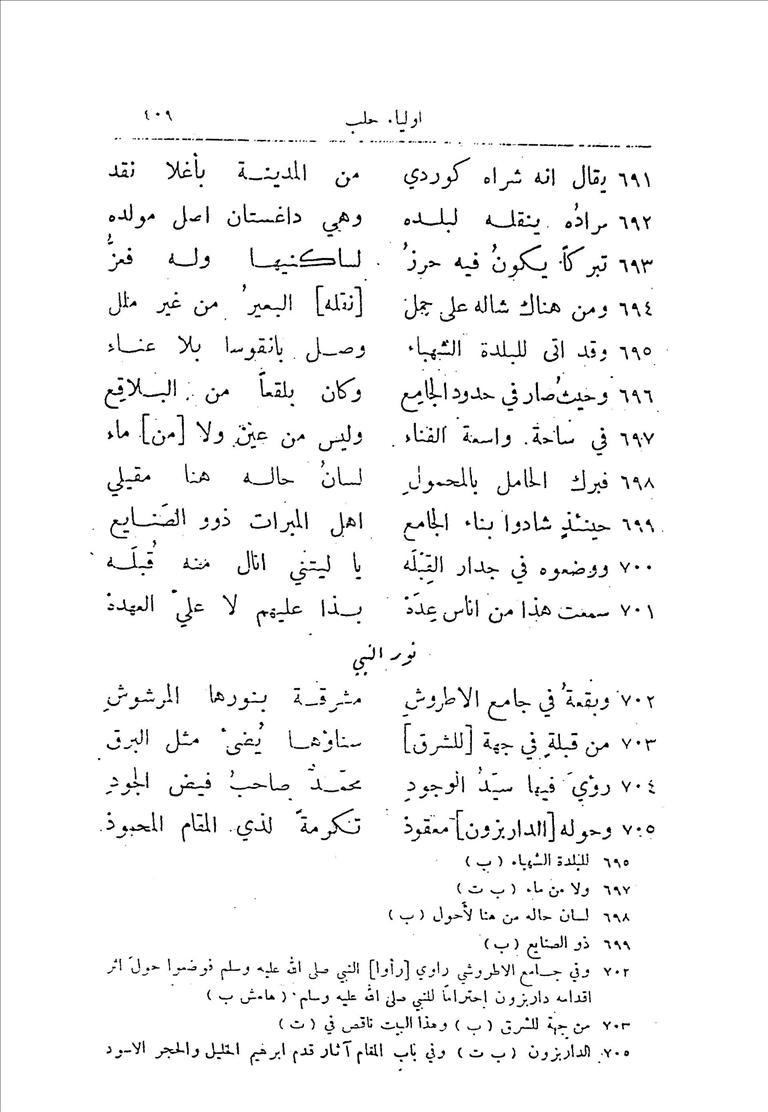 اولياء حلب ٤٠٩
٦٩١ يقال انه شراه كوردي من المدينة بأغلا نقد
٦٩٢ مرادُه ينقله لبلده وهي داغستان اصل مولده
٦٩٣ تبركاً يكونُ فيه حرزُ لساكنيها وله فعزُّ
٦٩٤ ومن هناك شاله على جمل [نقله] البعيرُ من غير ملل
٦٩٥ وقد اتى للبلدة الشهباء وصل بانقوسا بلا عناء
٦٩٦ وحيثُ صار في حدود الجامع وكان بلقعاً من البلاقِع
٦٩٧ في ساحة واسعة الفناء وليس من عينٍ ولا [من] ماء
٦٩٨ فبرك الحامل بالمحمولِ لسانُ حاله هنا مقيلي
٦٩٩ حينئذٍ شادوا بناء الجامع اهل المبرات ذوو الصَنايع
٧٠٠ ووضعوه في جدار القِبْلَه يا ليتني انال منه قُبلَه
٧٠١ سمعت هذا من اناس عِدَة بذا عليهم لا عليَّ العهدة
نور النبي
٧٠٢ وبقعةُ في جامع الاطروشِ مشرقة بنورها المرشوشِ
٧٠٣ من قبلةٍ في جهة [للشرق] سناؤها يُضيءُ مثل البرق
٧٠٤ رؤيَ فيها سيّدُ الوجودِ محمّدٌ صاحبُ فيض الجودِ
٧٠٥ وحوله [الداربزون] معقود تكرمةً لذي المقام المحمود
٦٩٥ للبلدة الشهباء (ب)
٦٩٧ ولا من ماء (ب ت)
٦٩٨ لسان حاله من هنا لأحول (ب)
٦٩٩ ذو الصنايع (ب)
٧٠٢ وفي جامع الاطروشي راوي [رأوا] النبي صلى الله عليه وسلم فوضعوا حول اثر
اقدامه داربزون إحتراماً للنبي صلى الله عليه وسلم (هامش ب)
٧٠٣ من جهة للشرق (ب) وهذا البيت ناقص في (ت)
٧٠٥ الداربزون (ب ت) وفي باب المقام آثار قدم ابرهيم الخليل والحجر الاسود